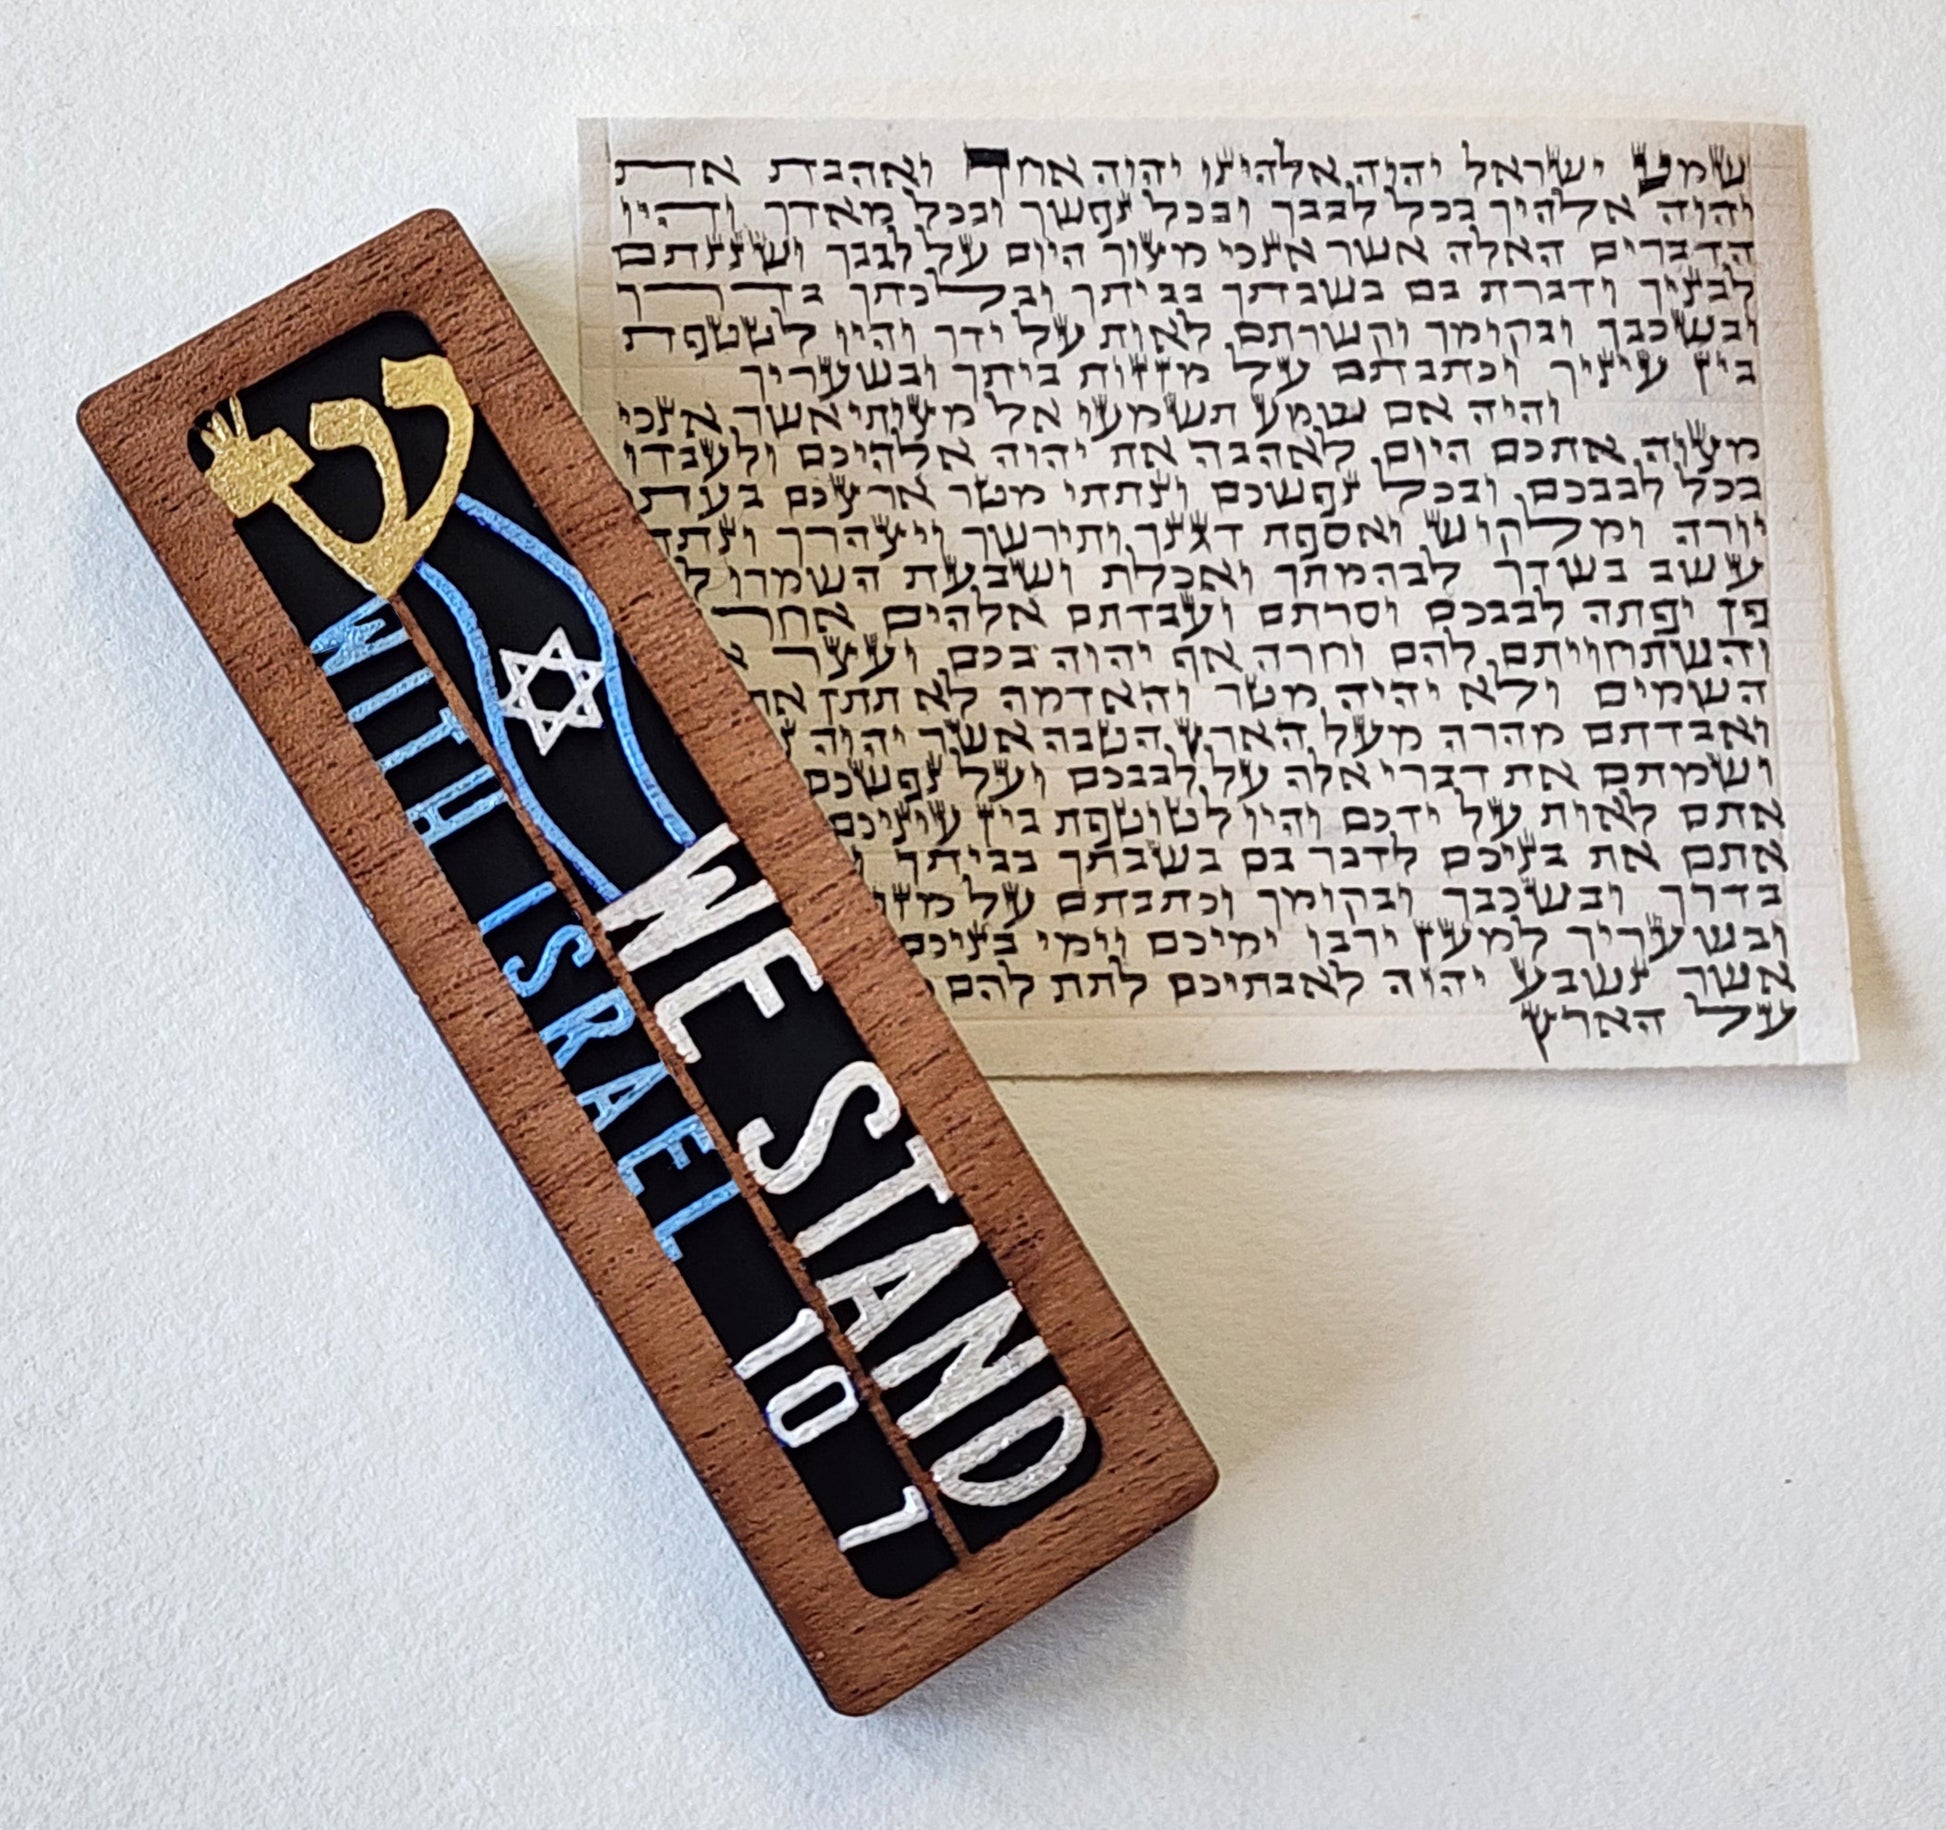 ש
WE STAND
WITH ISRAEL 10 7
שמע ישראל יהוה אלהינו יהוה אחד ואהבת את
יהוה אלהיך בכל לבבך ובכל נפשך ובכל מאדך והיו
הדברים האלה אשר אנכי מצוך היום על לבבך ושננתם
לבניך ודברת בם בשבתך בביתך ובלכתך בדרך
ובשכבך ובקומך וקשרתם לאות על ידך והיו לטטפת
בין עיניך וכתבתם על מזזות ביתך ובשעריך
והיה אם שמע תשמעו אל מצותי אשר אנכי
מצוה אתכם היום לאהבה את יהוה אלהיכם ולעבדו
בכל לבבכם ובכל נפשכם ונתתי מטר ארצכם בעתו
יורה ומלקוש ואספת דגנך ותירשך ויצהרך ונתתי
עשב בשדך לבהמתך ואכלת ושבעת השמרו
פן יפתה לבבכם וסרתם ועבדתם אלהים
והשתחויתם להם וחרה אף יהוה בכם ועצר
השמים ולא יהיה מטר והאדמה לא תתן את
ואבדתם מהרה מעל הארץ הטבה אשר יהוה
ושמתם את דברי אלה על לבבכם ועל נפשכם
אתם לאות על ידכם והיו לטוטפת בין עיניכם
אתם את בניכם לדבר בם בשבתך בביתך
בדרך ובשכבך ובקומך וכתבתם על
ובשעריך למען ירבו ימיכם וימי בניכם
אשר נשבע יהוה לאבתיכם לתת להם
על הארץ